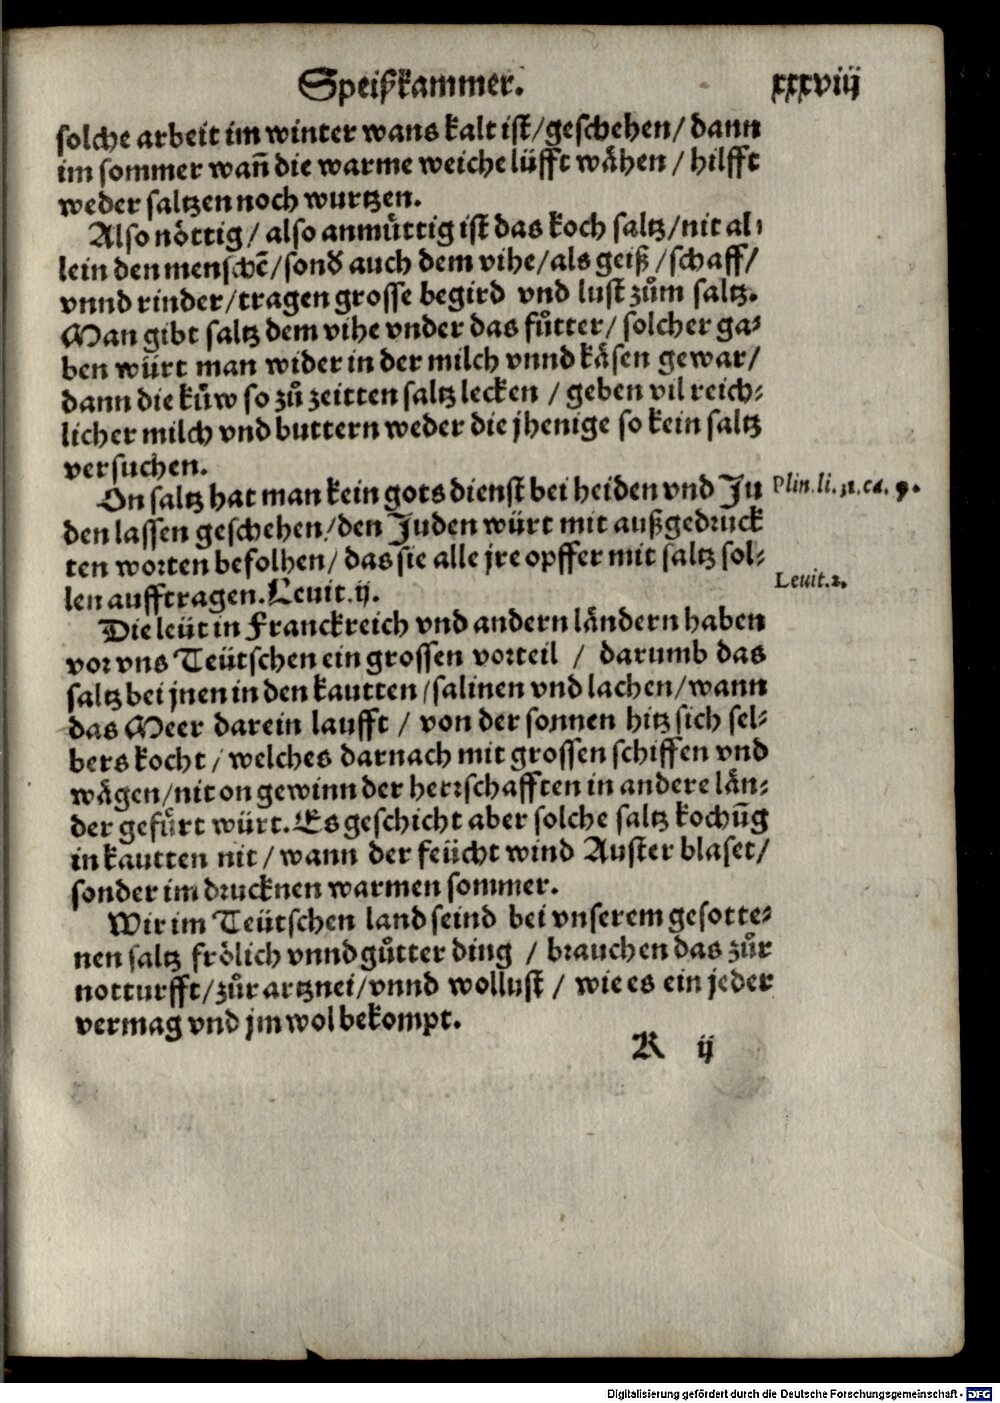 Speißkammer. xxxviij
solche arbeit im winter wans kalt ist/geschehen/ dann
im sommer wañ die warme weiche lüfft wähen / hilfft
weder saltzen noch wurtzen.
Also nöttig / also anmüttig ist das koch saltz/nit al⸗
lein den menschē/sonð auch dem vihe/als geiß /schaff/
vnnd rinder/tragen grosse begird vnd lust zům saltz.
Man gibt saltz dem vihe vnder das fůtter/ solcher ga⸗
ben würt man wider in der milch vnnd käsen gewar/
dann die kůw so zů zeitten saltz lecken / geben vil reich⸗
licher milch vnd buttern weder die jhenige so kein saltz
versuchen.
On saltz hat man kein gots dienst bei heiden vnd Ju
Plin. li. 31. ca. 9.
den lassen geschehen/den Juden würt mit außgedruck
ten worten befolhen/ das sie alle jre opffer mit saltz sol⸗
len aufftragen. Leuit. ij.
Leuit.2.
Die leüt in Franckreich vnd andern ländern haben
vor vns Teütschen ein grossen vorteil / darumb das
saltz bei jnen in den kautten/salinen vnd lachen/wann
das Meer darein laufft / von der sonnen hitz sich sel⸗
bers kocht/welches darnach mit grossen schiffen vnd
wägen/nit on gewinn der herrschafften in andere län⸗
der gefürt würt. Es geschicht aber solche saltz kochūg
in kautten nit / wann der feücht wind Auster blaset/
sonder im drucknen warmen sommer.
Wir im Teütschen land seind bei vnserem gesotte⸗
nen saltz frölich vnnd gůtter ding / brauchen das zůr
notturfft/zůr artznei/vnnd wollust / wie es ein jeder
vermag vnd jm wol bekompt.
K ij
Digitalisierung gefördert durch die Deutsche Forschungsgemeinschaft - DFG